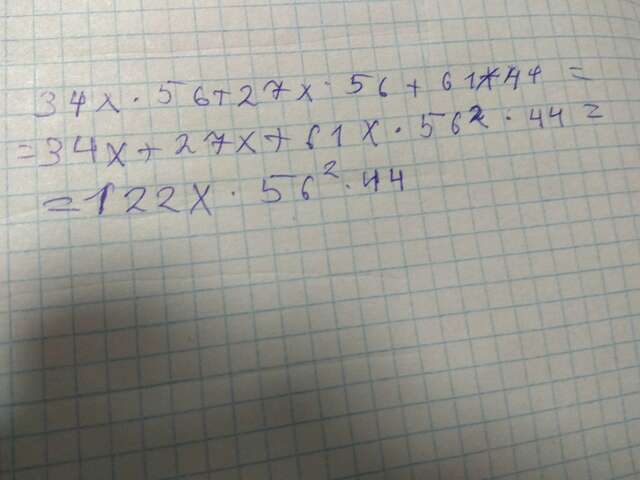 34x · 56+27x · 56 + 61x44 =
=34x+27x+61x · 56² · 44 =
=122x · 56² · 44